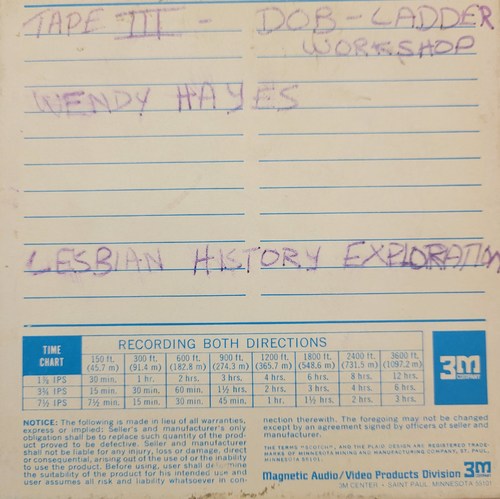 TAPE III - DOB-LADDER
WORKSHOP
WENDY HAYES
LESBIAN HISTORY EXPLORATION
TIME CHART
RECORDING BOTH DIRECTIONS
150 ft. (45.7 m) 300 ft. (91.4 m) 600 ft. (182.8 m) 900 ft. (274.3 m) 1200 ft. (365.7 m) 1800 ft. (548.6 m) 2400 ft. (731.5 m) 3600 ft. (1097.2 m)
1⅞ IPS 30 min. 1 hr. 2 hrs. 3 hrs. 4 hrs. 6 hrs. 8 hrs. 12 hrs.
3¾ IPS 15 min. 30 min. 60 min. 1½ hrs. 2 hrs. 3 hrs. 4 hrs. 6 hrs.
7½ IPS 7½ min. 15 min. 30 min. 45 min. 1 hr. 1½ hrs. 2 hrs. 3 hrs.
3M
COMPANY
NOTICE: The following is made in lieu of all warranties,
express or implied: Seller's and manufacturer's only
obligation shall be to replace such quantity of the prod-
uct proved to be defective. Seller and manufacturer
shall not be liable for any injury, loss or damage, direct
or consequential, arising out of the use of or the inability
to use the product. Before using, user shall determine
the suitability of the product for his intended use and
user assumes all risk and liability whatsoever in con-
nection therewith. The foregoing may not be changed
except by an agreement signed by officers of seller and
manufacturer.
THE TERMS "SCOTCH", AND THE PLAID DESIGN ARE REGISTERED TRADE-
MARKS OF MINNESOTA MINING AND MANUFACTURING COMPANY, ST. PAUL,
MINNESOTA 55101.
Magnetic Audio/Video Products Division 3M
3M CENTER • SAINT PAUL, MINNESOTA 55101